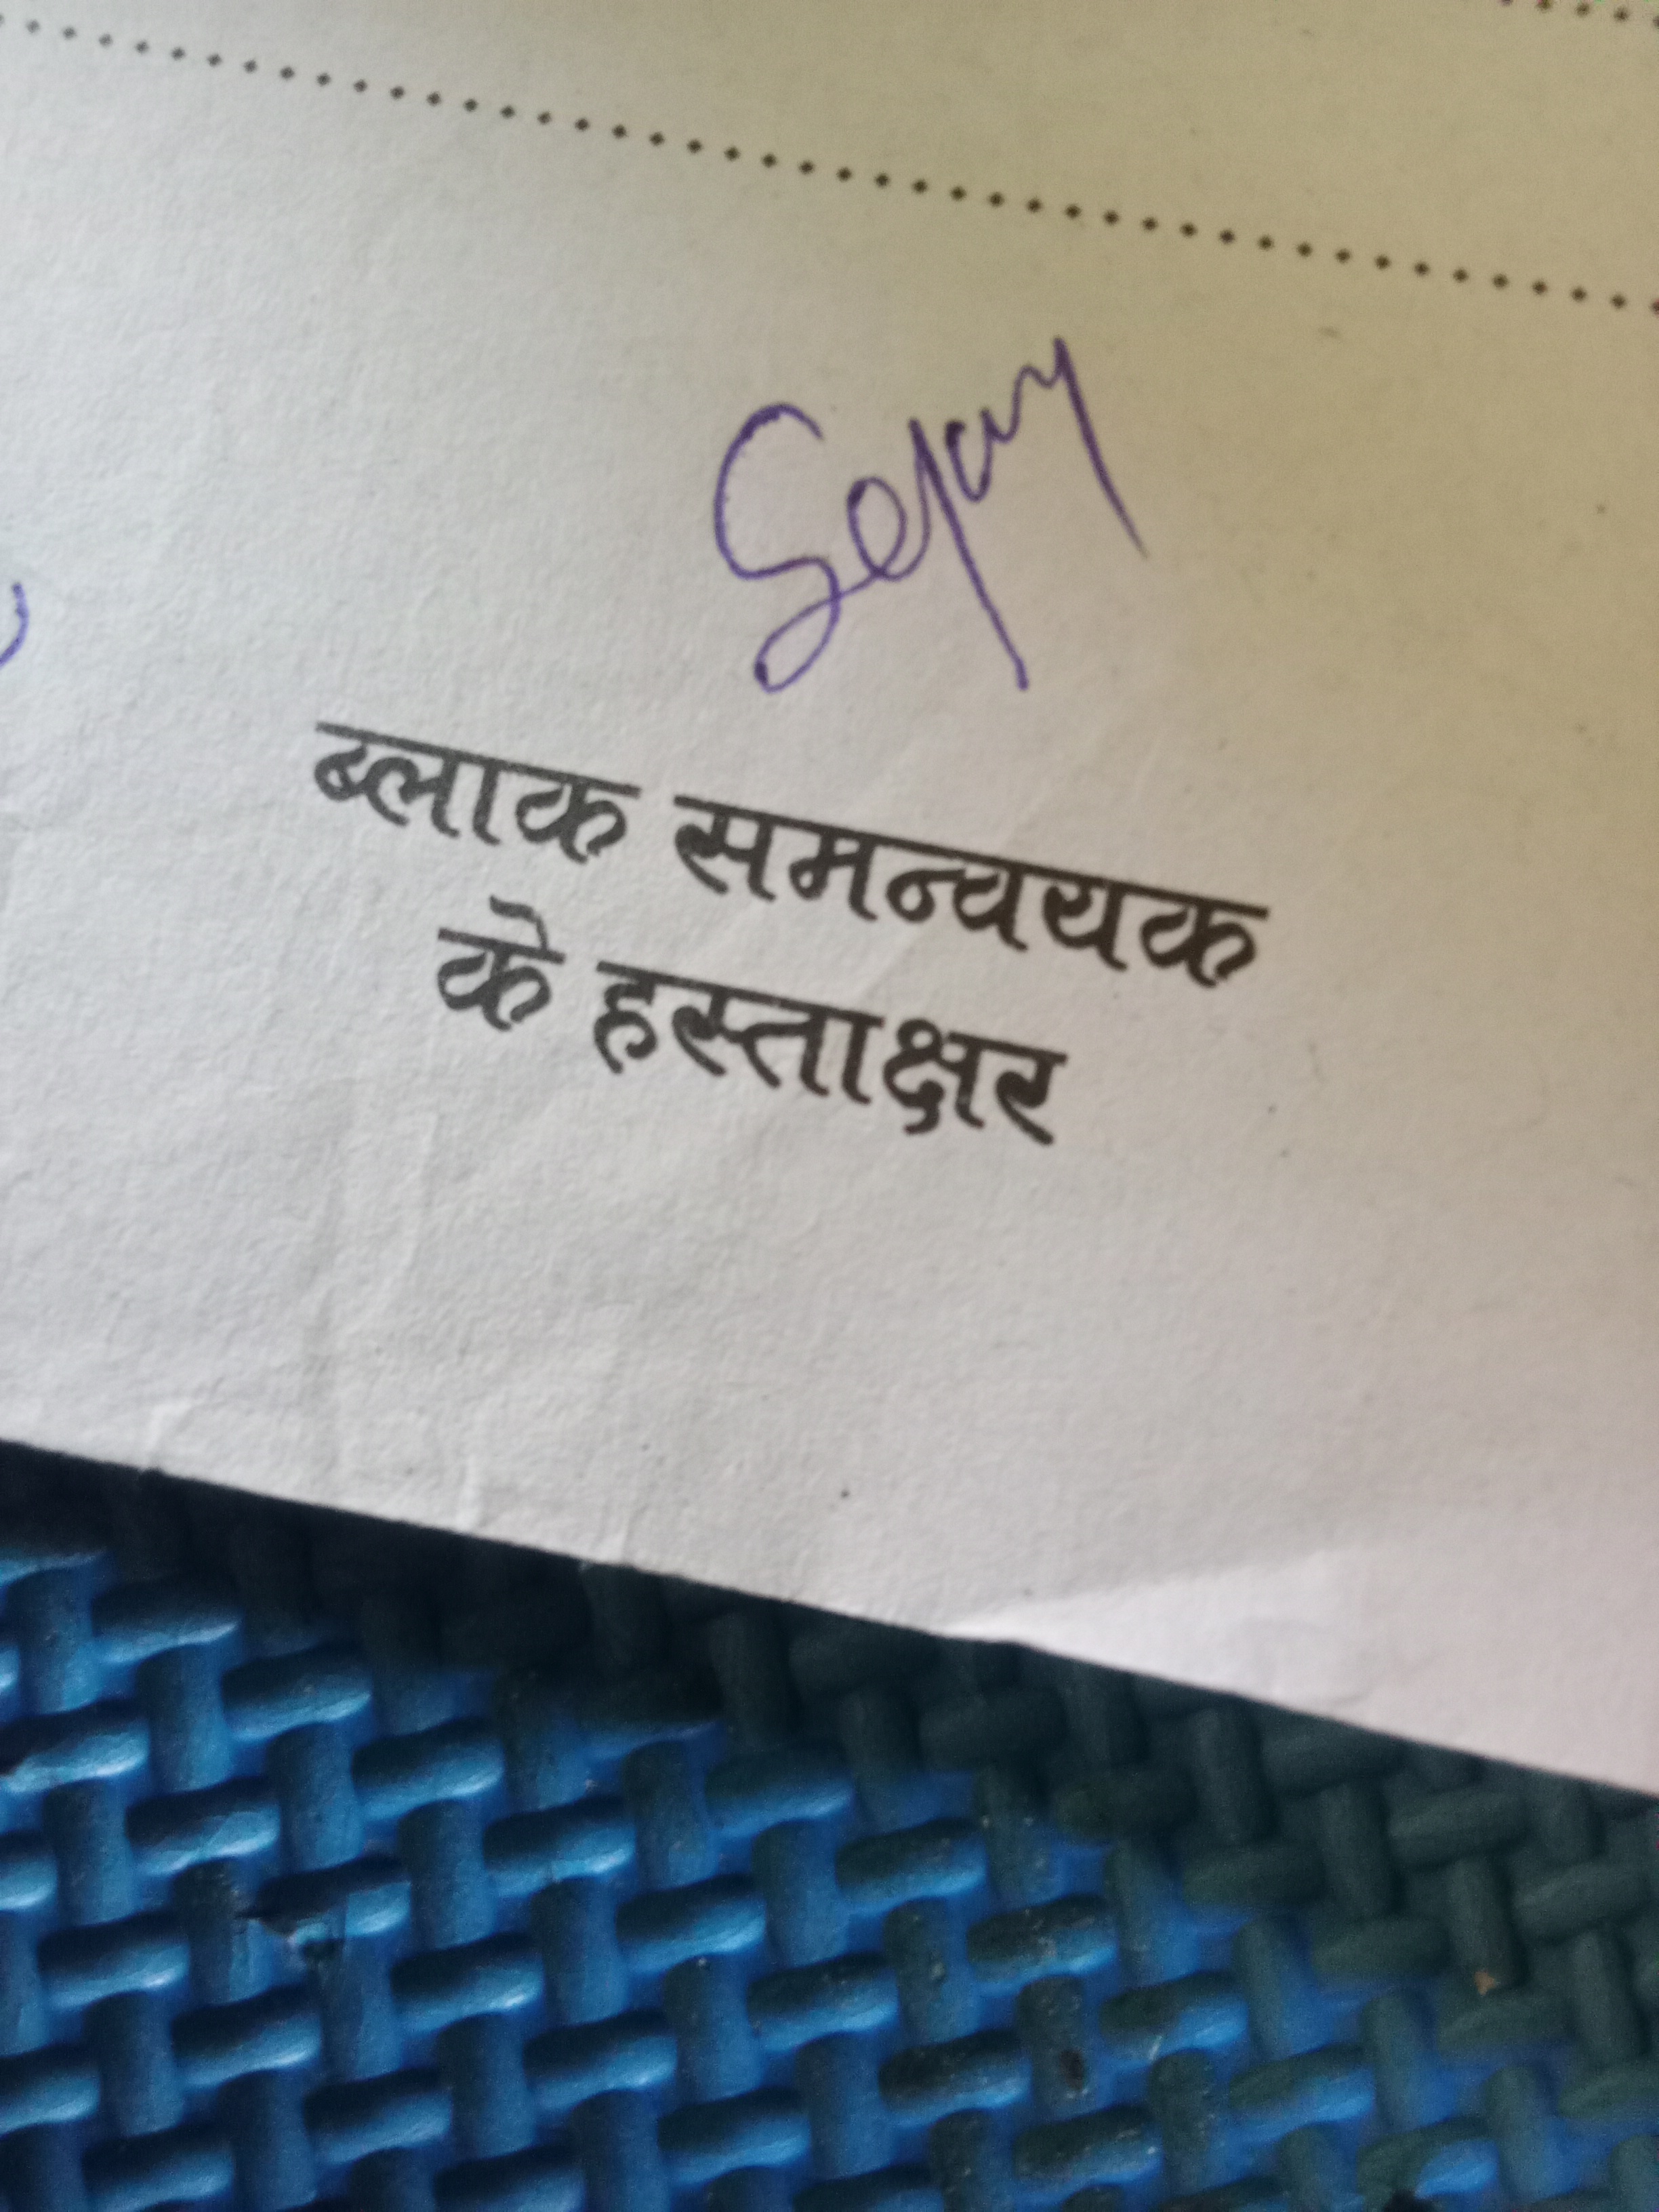 ब्लाक समन्वयक
के हस्ताक्षर